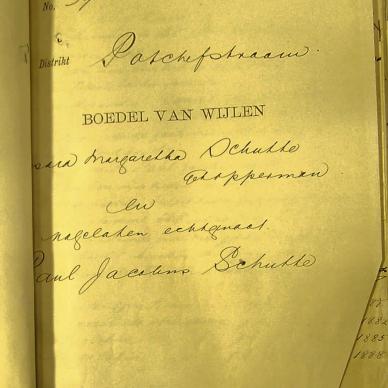 No.
Distrikt Potchefstroom.
BOEDEL VAN WIJLEN
Margaretha Schutte
en
nagelaten echtgenoot
Paul Jacobus Schutte
1885
1888